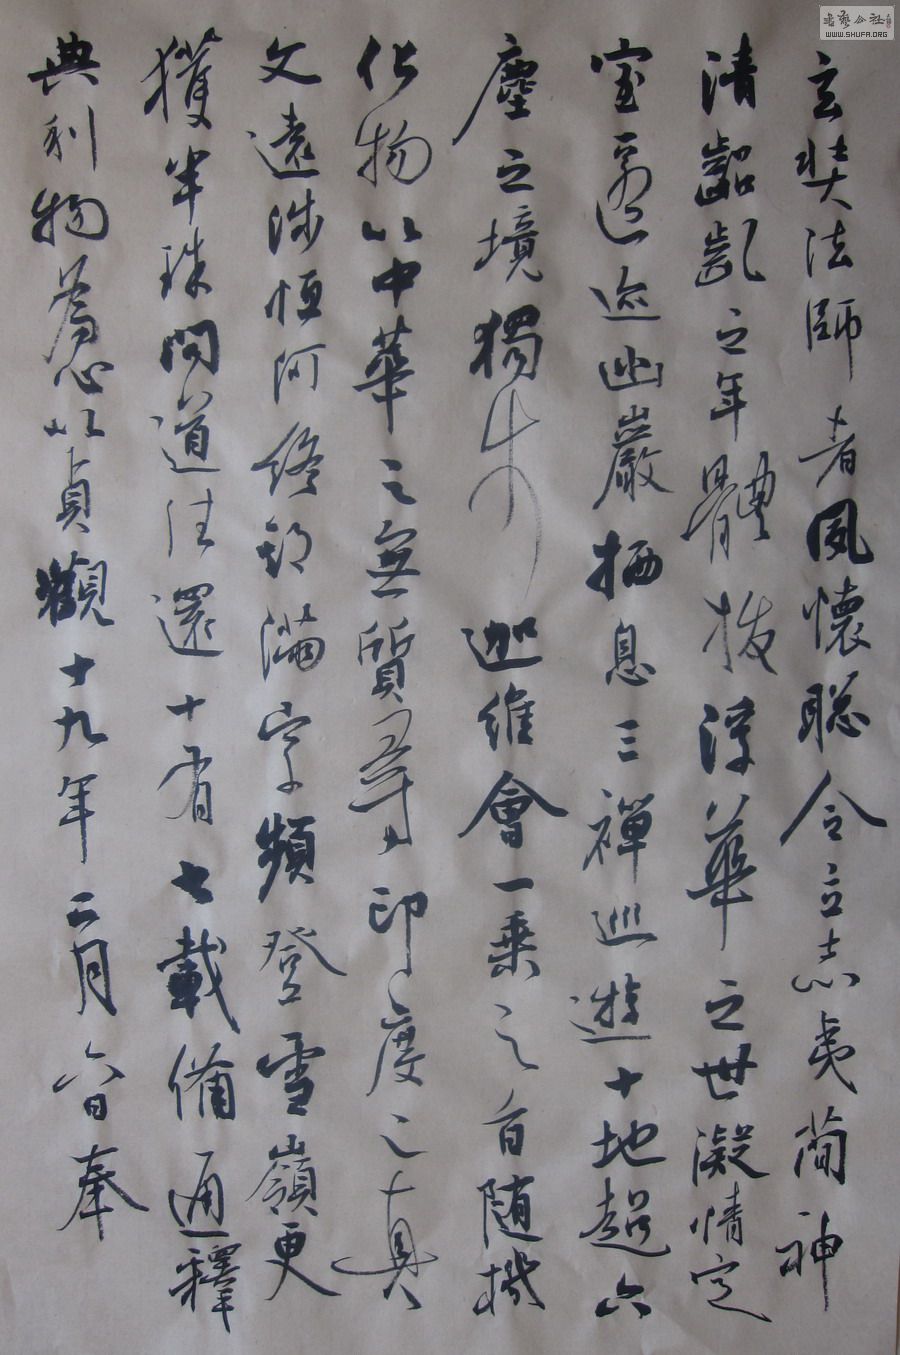 玄奘法師者夙懷聡令立志夷簡神
清齠齓之年體拔浮華之世凝情定
室匿迹幽巖栖息三禪巡遊十地超六
塵之境獨步迦維會一乗之旨随機
化物以中華之無質尋印度之真
文遠涉恒河終期滿字頻登雪嶺更
獲半珠問道往還十有七載備通釋
典利物為心以貞觀十九年二月六日奉
WWW.SHUFA.ORG